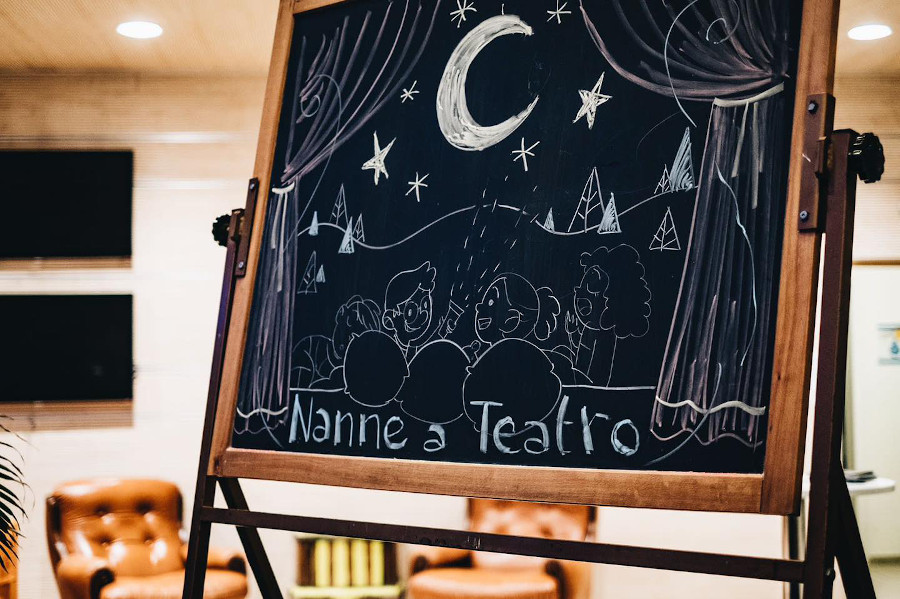 Nanne a Teatro